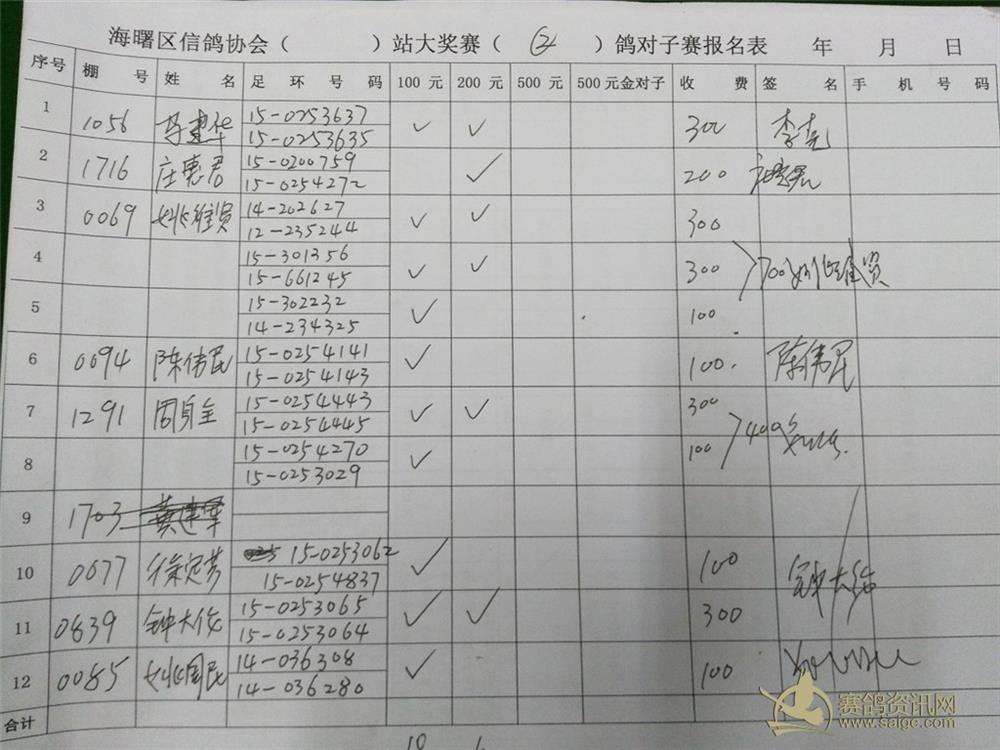 海曙区信鸽协会（ ）站大奖赛（ ② ）鸽对子赛报名表 年 月 日
序号 棚号 姓名 足环号码 100元 200元 500元 500元金对子 收费 签名 手机号码
1 1056 建华 15-0253637 ✓ ✓ 300
15-0253635
2 1716 庄惠君 15-0200759 ✓ 200 庄惠君
15-0254272
3 0069 姚维贤 14-202627 ✓ ✓ 300
12-235244
4 15-301356 ✓ ✓ 300 700 姚维贤
15-661245
5 15-302232 ✓ 100
14-234325
6 0094 陈伟民 15-0254141 ✓ 100. 陈伟民
15-0254143
7 1291 周 15-0254443 ✓ ✓ 300
15-0254445
400
8 15-0254270 ✓ 100
15-0253029
9 1703 龚建军
10 0077 徐定芳 15-0253062 ✓ 100
15-0254837
钟大佑
11 0839 钟大佑 15-0253065 ✓ ✓ 300
15-0253064
12 0085 姚国民 14-036308 ✓ 100
14-036280
合计
10
赛鸽资讯网
www.saige.com